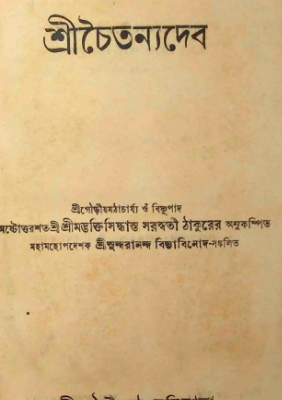 শ্রীচৈতন্যদেব
শ্রীগৌড়ীয়মঠাচার্য্য ওঁ বিষ্ণুপাদ
অষ্টোত্তরশতশ্রী শ্রীমদ্ভক্তিসিদ্ধান্ত সরস্বতী ঠাকুরের অনুকম্পিত
মহামহোপদেশক শ্রীসুন্দরানন্দ বিদ্যাবিনোদ-সঙ্কলিত